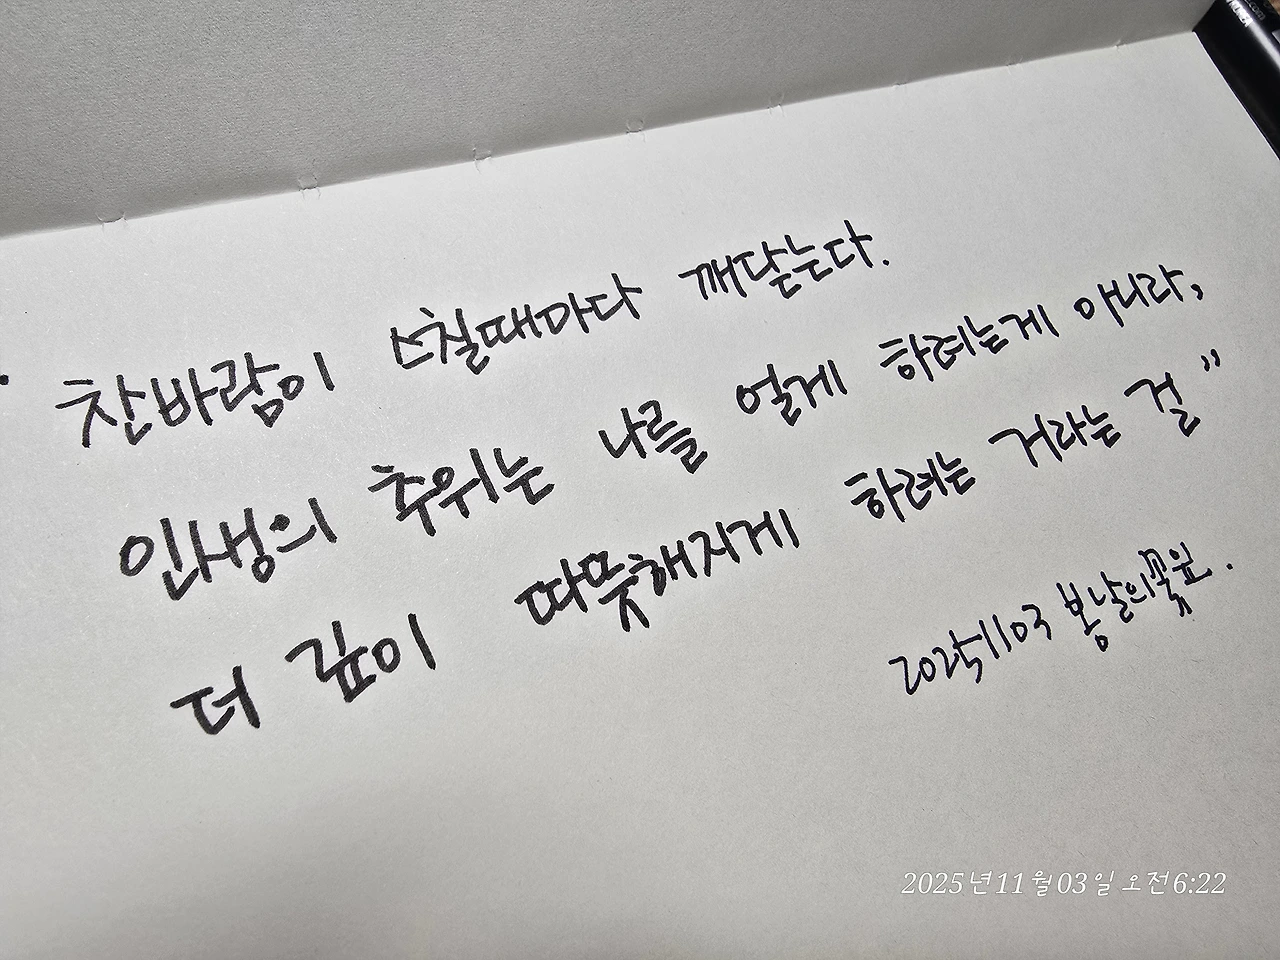 찬바람이 스칠때마다 깨닫는다.
인생의 추위는 나를 얼게 하려는게 아니라,
더 깊이 따뜻해지게 하려는 거라는 걸"
20251103 봄날의꽃잎.
2025년11월03일 오전6:22